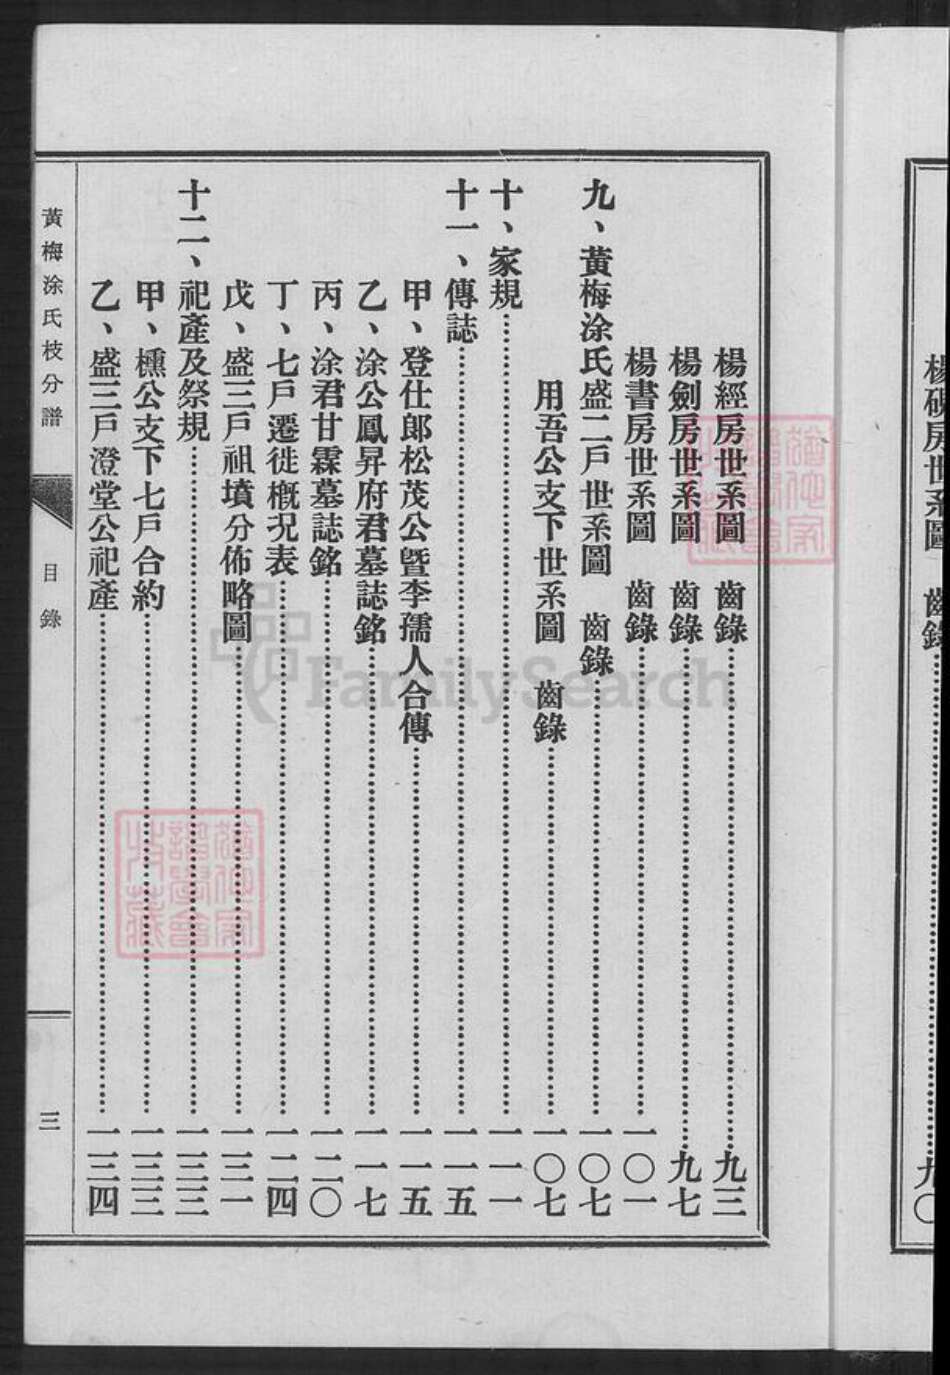 楊硯房世系圖 齒錄……九〇
楊經房世系圖 齒錄……九三
楊劍房世系圖 齒錄……九七
楊書房世系圖 齒錄……一〇一
九、黃梅涂氏盛二戶世系圖 齒錄……一〇七
用吾公支下世系圖 齒錄……一〇七
十、家規……一一一
十一、傳誌……一一五
甲、登仕郎松茂公暨李孺人合傳……一一五
乙、涂公鳳昇府君墓誌銘……一一七
丙、涂君甘霖墓誌銘……一二〇
丁、七戶遷徙概況表……一二四
戊、盛三戶祖墳分佈略圖……一三一
十二、祀產及祭規……一三三
甲、櫄公支下七戶合約……一三三
乙、盛三戶澄堂公祀產……一三四
黃梅涂氏枝分譜
目錄
三
FamilySearch